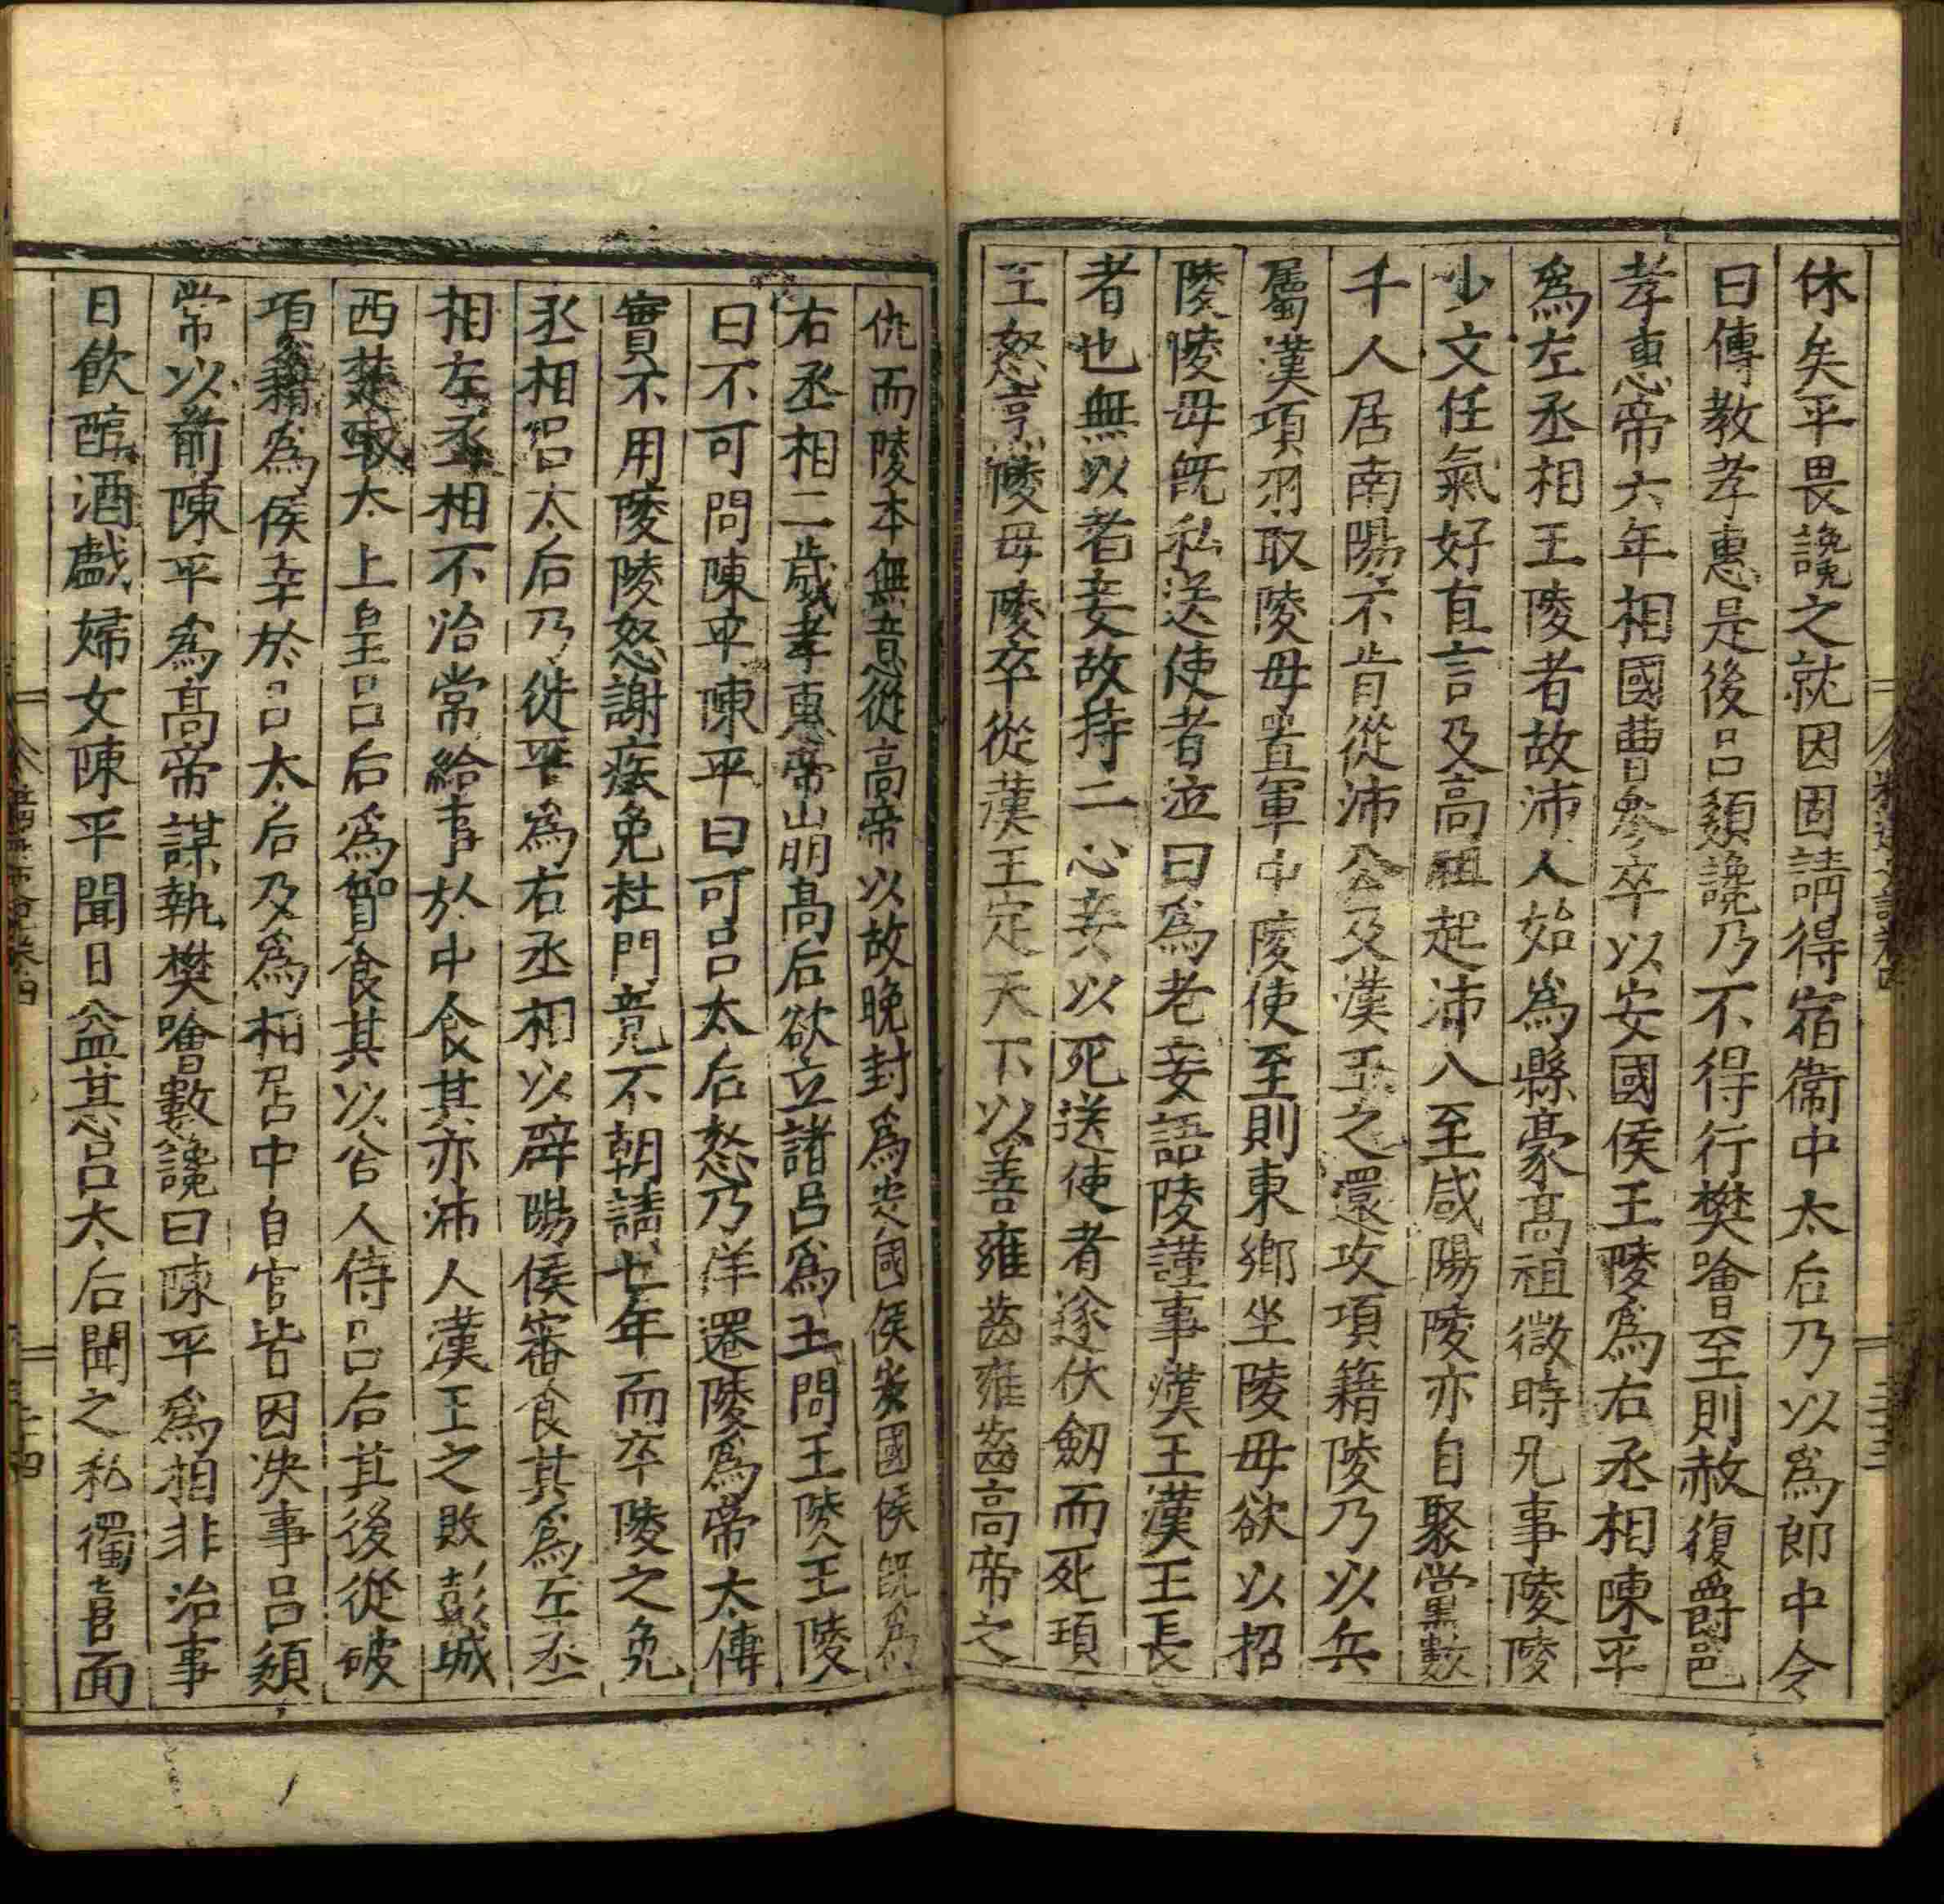 休矣平畏讒之就因固請得宿衛中太后乃以爲郎中令
曰傅教孝惠是後呂嬃讒乃不得行樊噲至則赦復爵邑
孝惠帝六年相國曹參卒以安國侯王陵爲右丞相陳平
爲左丞相王陵者故沛人始爲縣豪高祖微時兄事陵陵
少文任氣好直言及高祖起沛入至咸陽陵亦自聚黨數
千人居南陽不肯從沛公及漢王之還攻項籍陵乃以兵
屬漢項羽取陵母置軍中陵使至則東鄉坐陵母欲以招
陵陵母既私送使者泣曰爲老妾語陵謹事漢王漢王長
者也無以老妾故持二心妾以死送使者遂伏劒而死項
王怒烹陵母陵卒從漢王定天下以善雍齒雍齒高帝之
仇而陵本無意從高帝以故晚封爲安國侯安國侯既爲
右丞相二歲孝惠帝崩高后欲立諸呂爲王問王陵王陵
曰不可問陳平陳平曰可呂太后怒乃佯遷陵爲帝太傅
實不用陵陵怒謝疾免杜門竟不朝請七年而卒陵之免
丞相呂太后乃徙平爲右丞相以辟陽侯審食其爲左丞
相左丞相不治常給事於中食其亦沛人漢王之敗彭城
西楚取太上皇呂后爲質食其以舍人侍呂后其後從破
項籍爲侯幸於呂太后及爲相居中百官皆因決事呂嬃
常以前陳平爲高帝謀執樊噲數讒曰陳平爲相非治事
日飲醇酒戲婦女陳平聞日益甚呂太后聞之私獨喜面